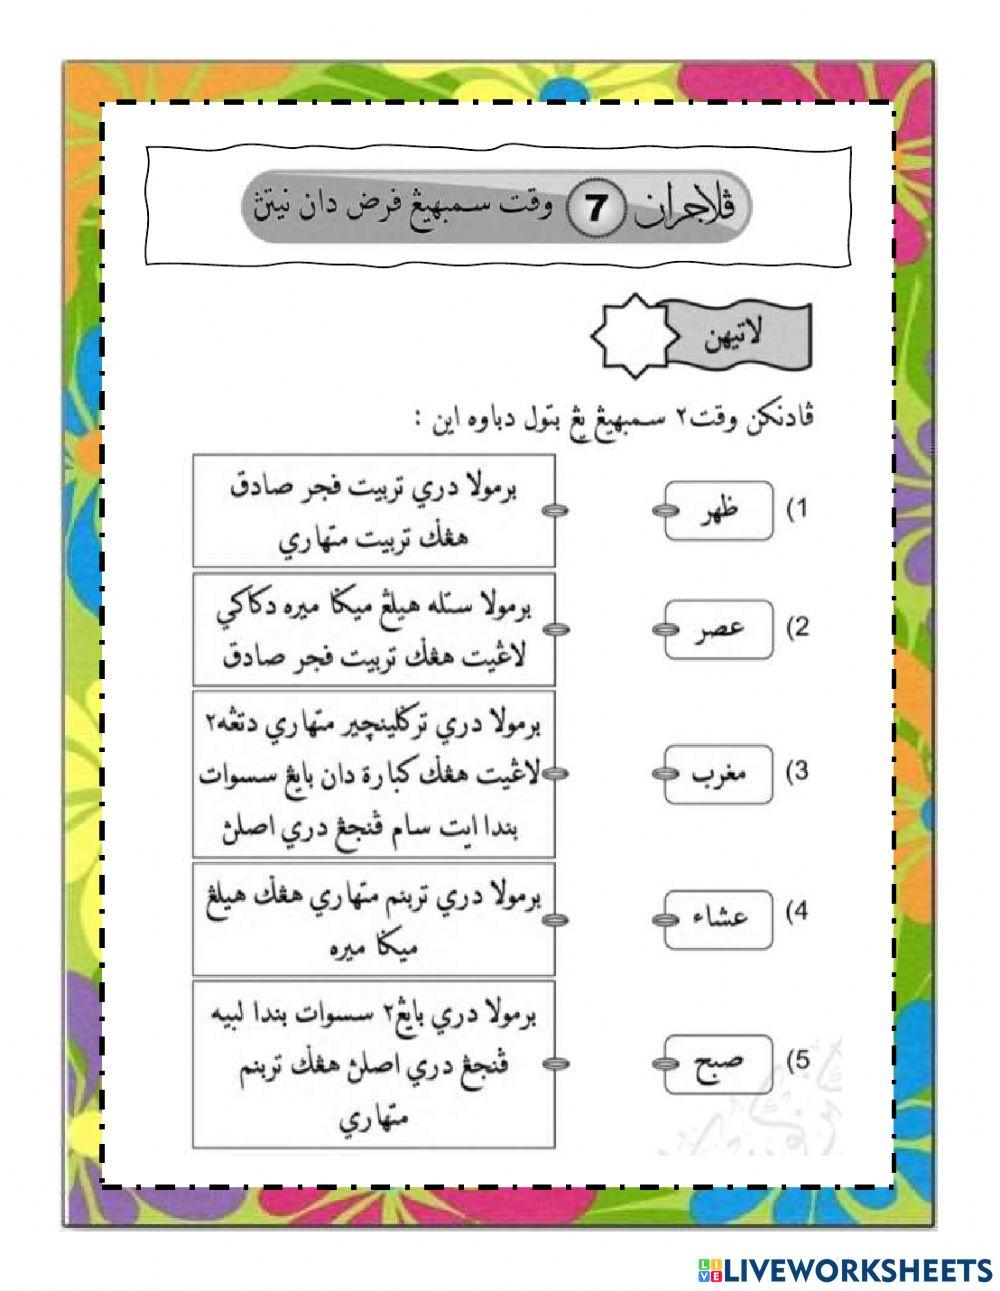 ڤلاجران 7 وقت سمبهيڠ فرض دان نيتڽ
لاتيهن
ڤادنكن وقت٢ سمبهيڠ يڠ بتول دباوه اين :
1) ظهر
2) عصر
3) مغرب
4) عشاء
5) صبح
برمولا دري تربيت فجر صادق
هڠݢ تربيت متهاري
برمولا ستله هيلڠ ميݢا ميره دكاكي
لاڠيت هڠݢ تربيت فجر صادق
برمولا دري ترݢلينچير متهاري دتڠه٢
لاڠيت هڠݢ كبارة دان بايڠ سسوات
بندا ايت سام ڤنجڠ دري اصلڽ
برمولا دري تربنم متهاري هڠݢ هيلڠ
ميݢا ميره
برمولا دري بايڠ٢ سسوات بندا لبيه
ڤنجڠ دري اصلڽ هڠݢ تربنم
متهاري
LIVEWORKSHEETS